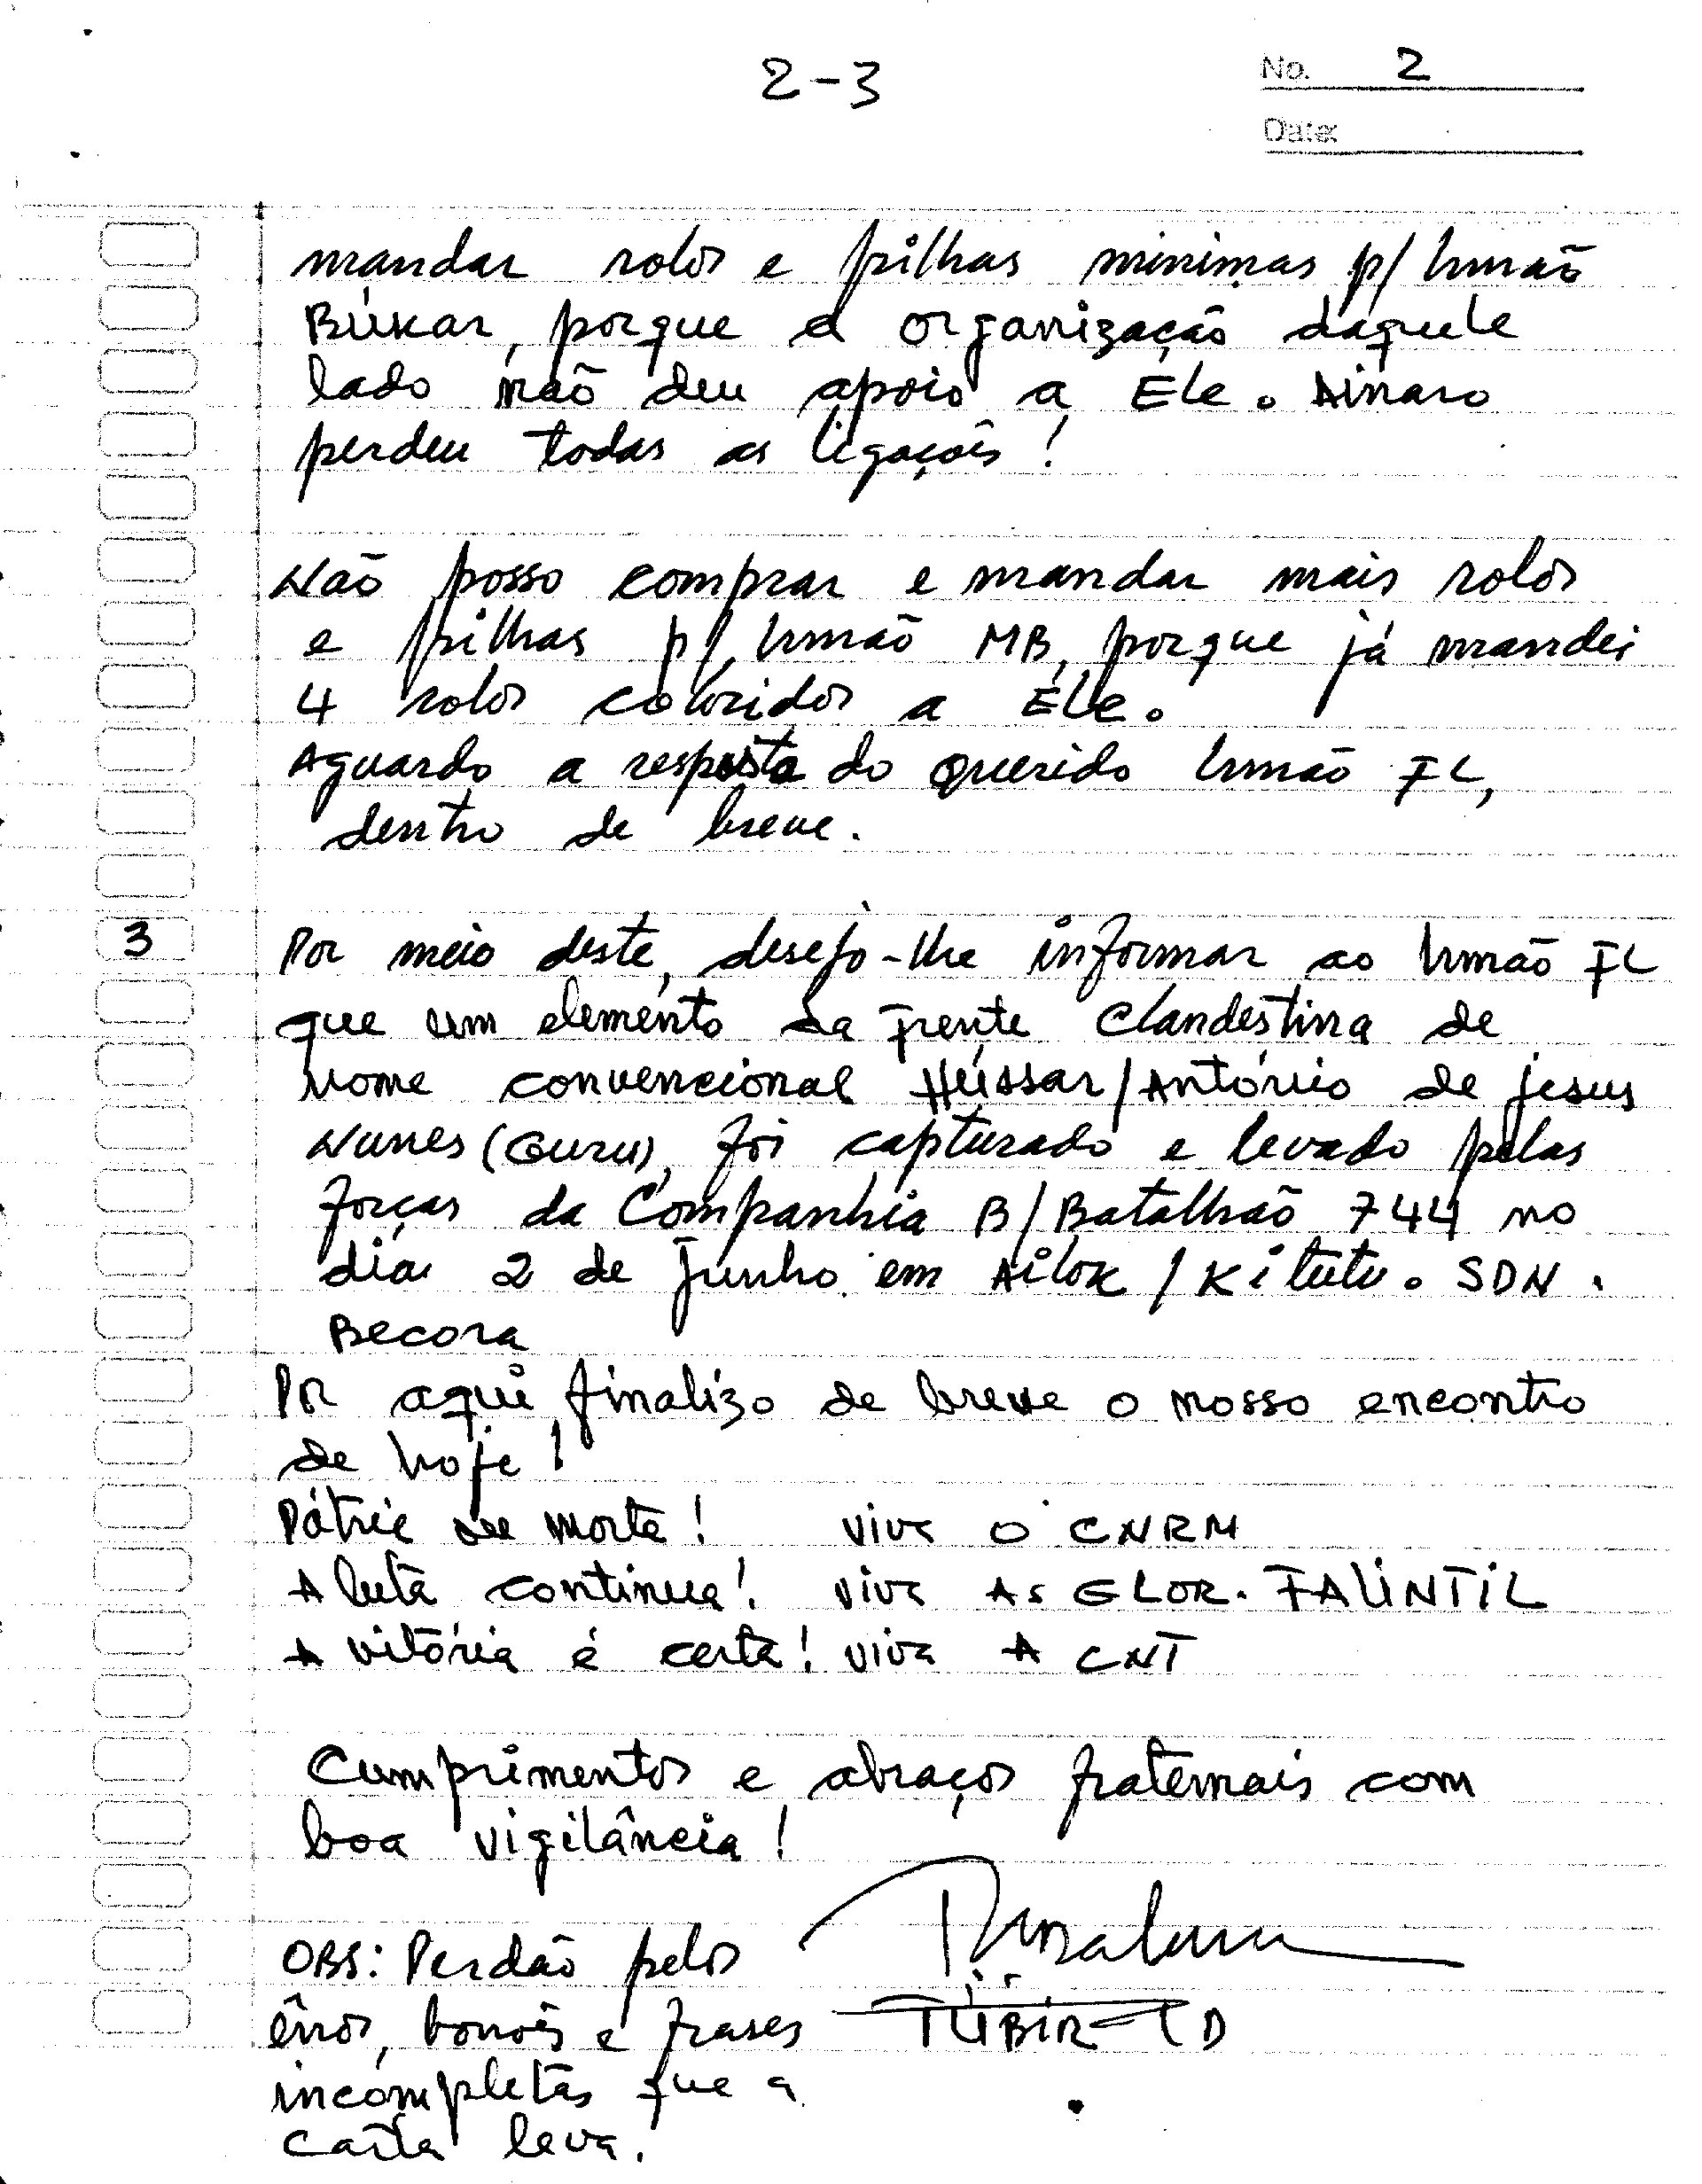 2-3
No. 2
Date:
mandar rolos e pilhas minimas p/ Irmão
Búkar, porque a organização daquele
lado não deu apoio a Ele. Ainaro
perdeu todas as ligações!
Não posso comprar e mandar mais rolos
e pilhas p/ Irmão MB, porque já mandei
4 rolos coloridos a Ele.
Aguardo a resposta do querido Irmão FL,
dentro de breve.
3 Por meio deste, desejo-lhe informar ao Irmão FL
que um elemento da Frente Clandestina de
Nome convencional Héissar/António de jesus
Nunes (Guru), foi capturado e levado pelas
forças da Companhia B/Batalhão 744 no
dia 2 de Junho em Ailok / Kitutu. SDN.
Becora
Por aqui, finalizo de breve o nosso encontro
de hoje!
Pátria ou morte! Viva o CNRM
A luta continua! Viva As GLOR. FALINTIL
A vitória é certa! Viva A CNT
Cumprimentos e abraços fraternais com
boa vigilância!
OBS: Perdão pelos
êrros, borrões e frases TÜBÍR-TD
incompletas que a
carta leva.